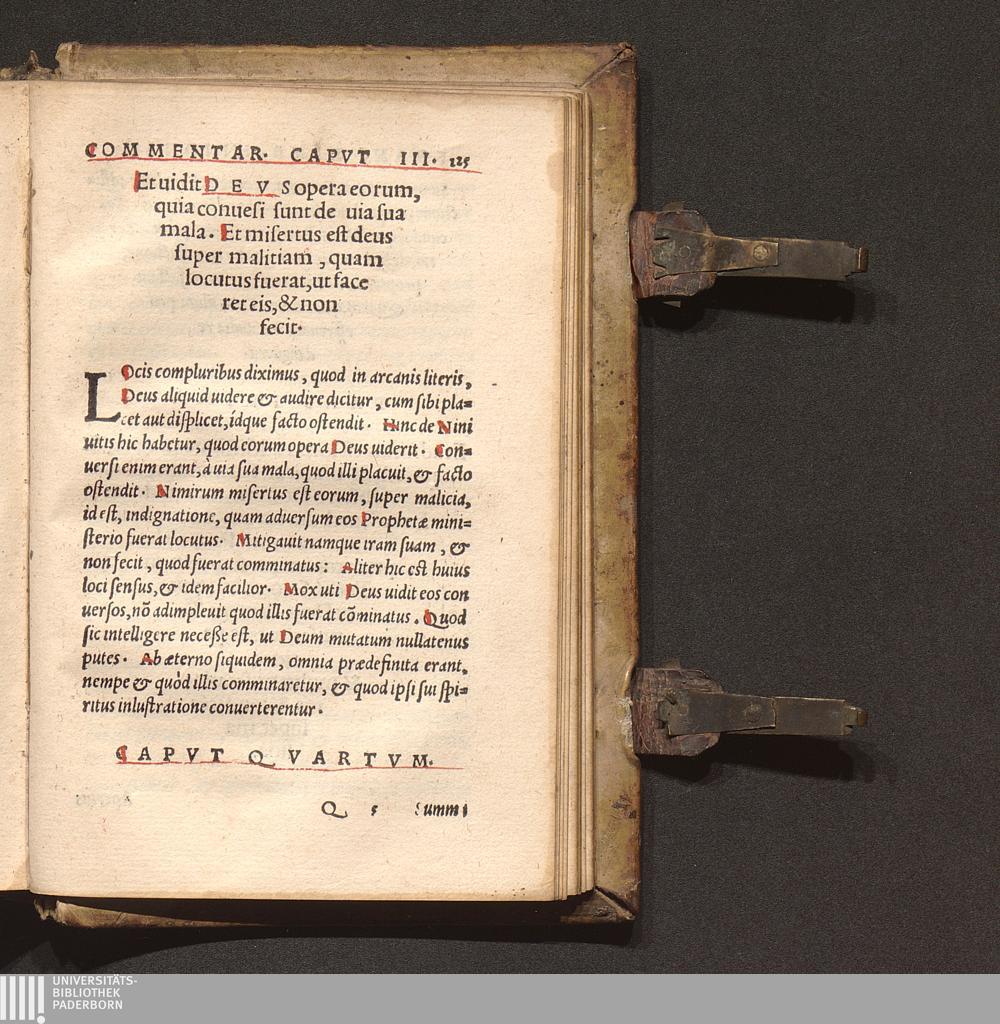 COMMENTAR. CAPVT III. 125
Et uidit DEVS opera eorum,
quia conuesi sunt de uia sua
mala. Et misertus est deus
super malitiam, quam
locutus fuerat, ut face
ret eis, & non
fecit.
LOcis compluribus diximus, quod in arcanis literis,
Deus aliquid uidere & audire dicitur, cum sibi pla=
cet aut displicet, idque facto ostendit. Hinc de Nini
uitis hic habetur, quod eorum opera Deus uiderit. Con=
uersi enim erant, à uia sua mala, quod illi placuit, & facto
ostendit. Nimirum misertus est eorum, super malicia,
id est, indignatione, quam aduersum eos Prophetæ mini=
sterio fuerat locutus. Mitigauit namque iram suam, &
non fecit, quod fuerat comminatus: Aliter hic est huius
loci sensus, & idem facilior. Mox uti Deus uidit eos con
uersos, nõ adimpleuit quod illis fuerat cõminatus. Quod
sic intelligere necesse est, ut Deum mutatum nullatenus
putes. Ab æterno siquidem, omnia prædefinita erant,
nempe & quòd illis comminaretur, & quod ipsi sui spi=
ritus inlustratione conuerterentur.
CAPVT QVARTVM.
Q 5 Summi
UNIVERSITÄTS-
BIBLIOTHEK
PADERBORN